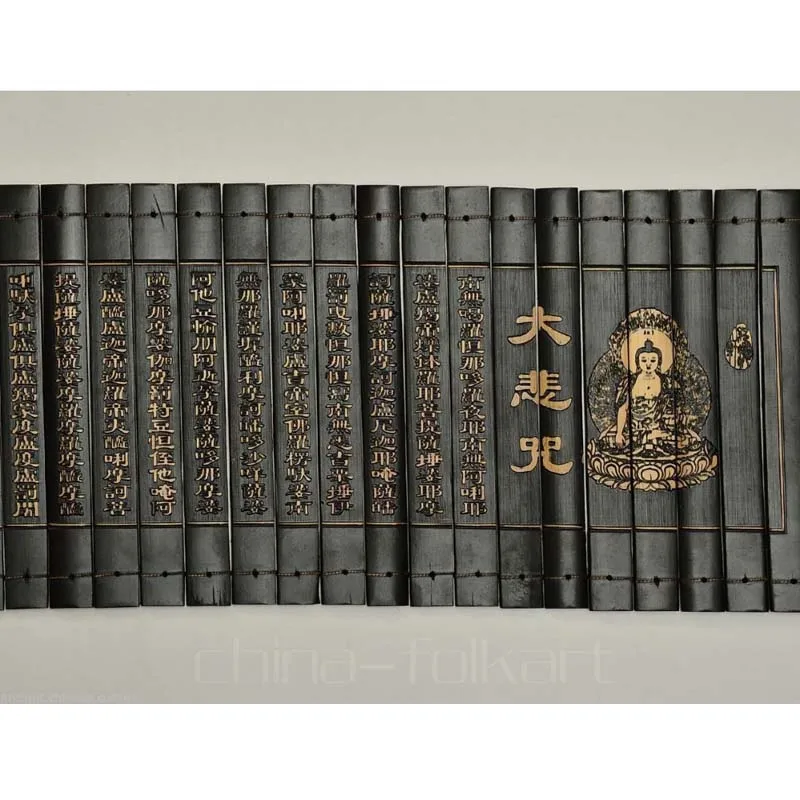 大悲咒
南無喝羅怛那哆羅夜耶南無阿唎耶
婆盧羯帝爍鉢羅耶菩提薩埵婆耶摩
訶薩埵婆耶摩訶迦盧尼迦耶唵薩皤
羅罰曳數怛那怛寫南無悉吉栗埵伊
蒙阿唎耶婆盧吉帝室佛羅楞馱婆南
無那羅謹墀醯利摩訶皤哆沙咩薩婆
阿他豆愉朋阿逝孕薩婆薩哆那摩婆
薩哆那摩婆伽摩罰特豆怛侄他唵阿
婆盧醯盧迦帝迦羅帝夷醯唎摩訶菩
提薩埵薩婆薩婆摩羅摩羅摩醯摩醯
唎馱孕俱盧俱盧羯蒙度盧度盧罰闍
china-folkart